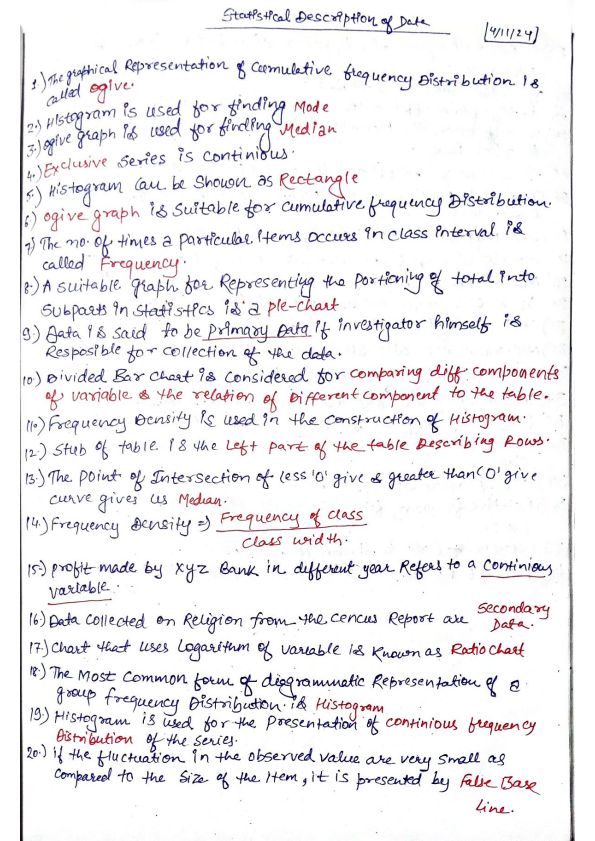 Statistical Description of Data
4/11/24
1.) The graphical Representation of Cumulative frequency Distribution is
called ogive.
2.) Histogram is used for finding Mode
3.) ogive graph is used for finding Median
4.) Exclusive series is continious.
5.) Histogram can be shown as Rectangle
6.) ogive graph is suitable for cumulative frequency Distribution.
7) The no. of times a particular items occurs in class interval is
called Frequency.
8.) A suitable graph for Representing the portioning of total into
subparts in statistics is a pie-chart
9.) Data is said to be primary Data if investigator himself is
Resposible for collection of the data.
10.) Divided Bar Chart is considered for comparing diff components
of variable & the relation of Different component to the table.
11.) Frequency Density is used in the construction of Histogram.
12.) Stub of table is the Left part of the table Describing Rows.
13.) The point of Intersection of less 'O' give & greater than 'O' give
curve gives us Median.
14.) Frequency Density => Frequency of class
class width.
15.) profit made by xyz Bank in different year Refers to a continious
variable.
16.) Data collected on Religion from the cencus Report are Secondary
Data.
17.) Chart that uses Logarithm of variable is known as Ratio Chart
18.) The Most Common form of diagrammatic Representation of a
group frequency Distribution. is Histogram
19.) Histogram is used for the Presentation of continious frequency
Distribution of the series.
20.) if the fluctuation in the observed value are very small as
compared to the size of the item, it is presented by False Base
Line.